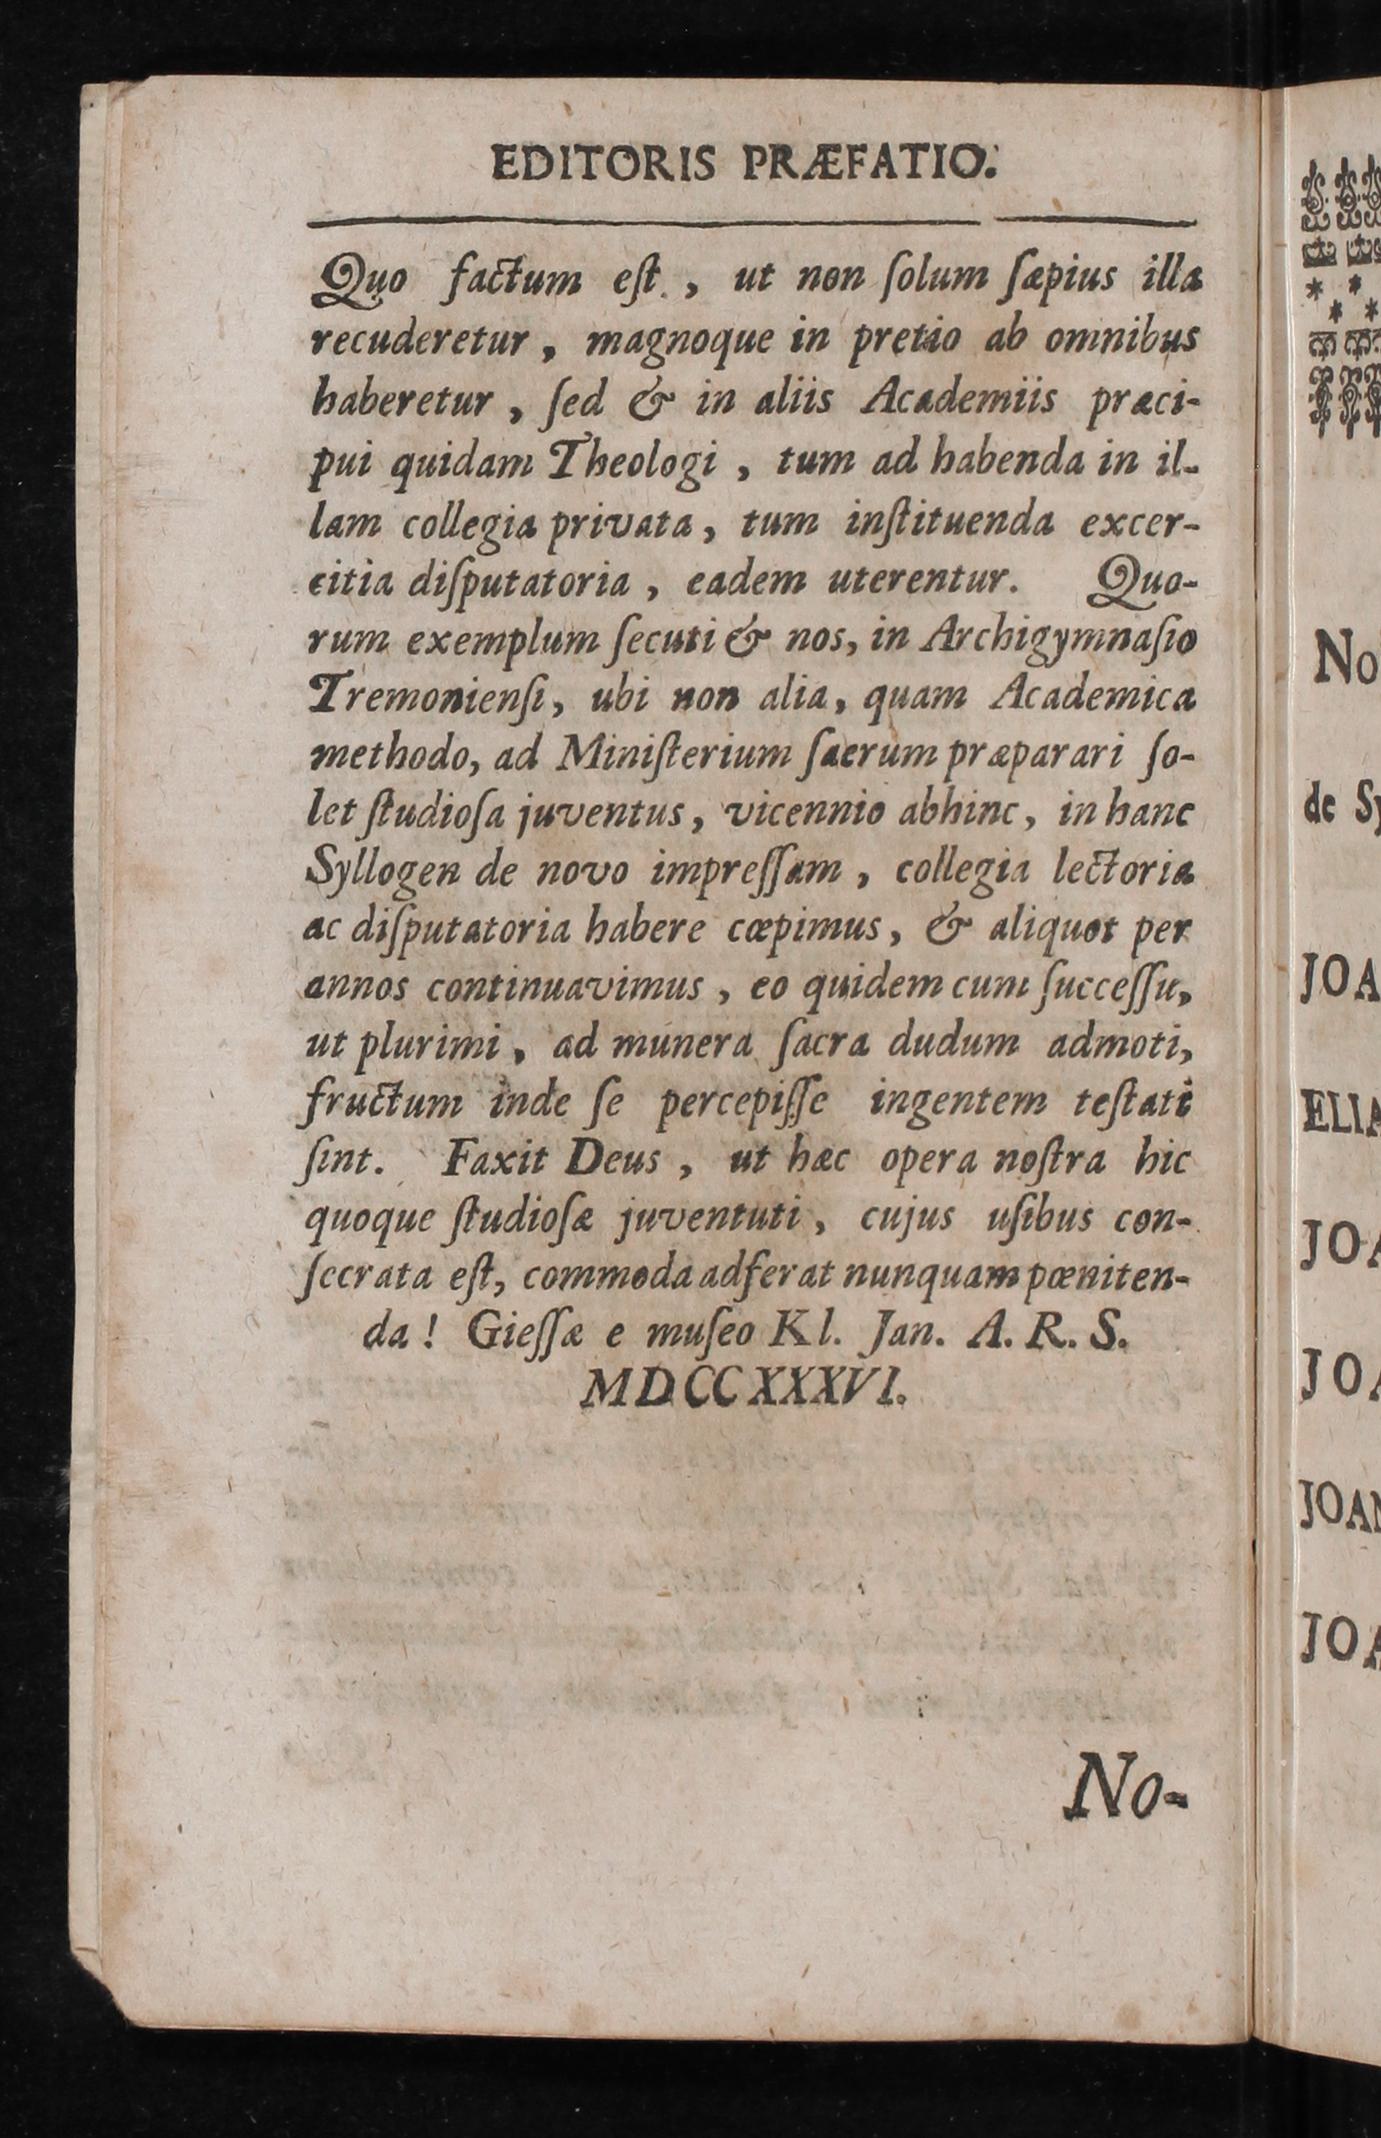 EDITORIS PRÆFATIO.
Quo factum eſt, ut non ſolum ſæpius illa
recuderetur, magnoque in pretio ab omnibus
haberetur, ſed & in aliis Academiis præci-
pui quidam Theologi, tum ad habenda in il-
lam collegia privata, tum inſtituenda excer-
citia diſputatoria, eadem uterentur. Quo-
rum exemplum ſecuti & nos, in Archigymnaſio
Tremonienſi, ubi non alia, quam Academica
methodo, ad Miniſterium ſacrum præparari ſo-
let ſtudioſa juventus, vicennio abhinc, in hanc
Syllogen de novo impreſſam, collegia lectoria
ac diſputatoria habere cœpimus, & aliquot per
annos continuavimus, eo quidem cum ſucceſſu,
ut plurimi, ad munera ſacra dudum admoti,
fructum inde ſe percepiſſe ingentem teſtati
ſint. Faxit Deus, ut hæc opera noſtra hic
quoque ſtudioſæ juventuti, cujus uſibus con-
ſecrata eſt, commoda adferat nunquam pœniten-
da! Gieſſæ e muſeo Kl. Jan. A. R. S.
MDCCXXXVI.
No-
No
de Sy
JOA
ELIA
JOA
JOA
JOAN
JOA